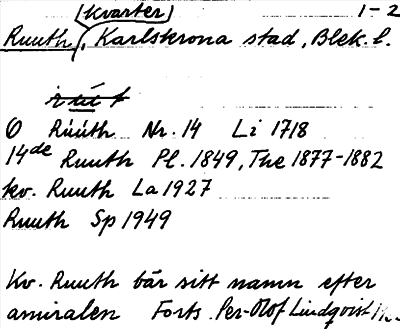 (kvarter) 1-2
Ruuth, Karlskrona stad, Blek. l.
rút
O Rúúth Nr. 14 Li 1718
14de Ruuth Pl. 1849, The 1877-1882
kv. Ruuth La 1927
Ruuth Sp 1949
Kv. Ruuth bär sitt namn efter
amiralen Forts. Per-Olof Lindqvist